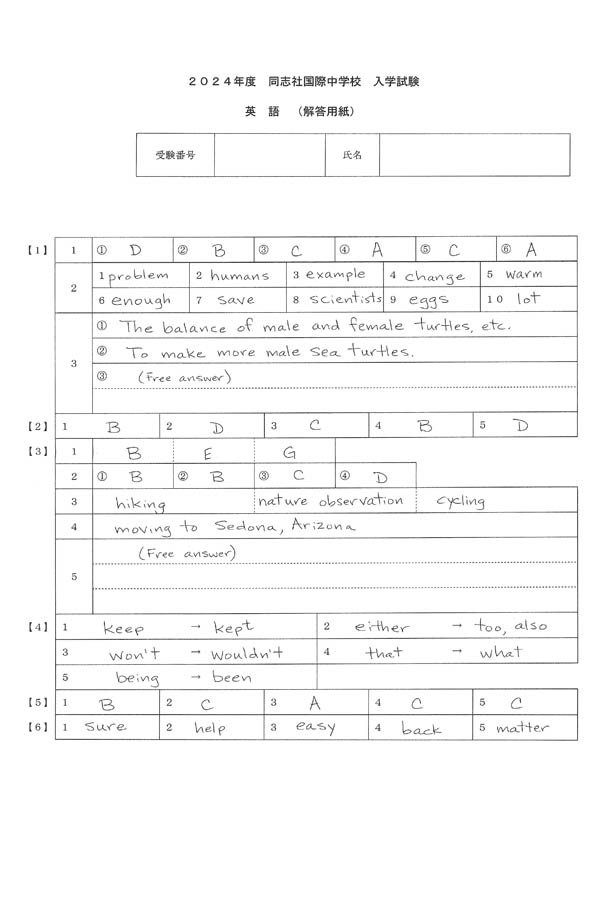 ２０２４年度　同志社国際中学校　入学試験
英　語　（解答用紙）
受験番号　氏名
【１】 1 ① D ② B ③ C ④ A ⑤ C ⑥ A
2 1 problem 2 humans 3 example 4 change 5 warm
6 enough 7 save 8 scientists 9 eggs 10 lot
3 ① The balance of male and female turtles, etc.
② To make more male sea turtles.
③ (Free answer)
【２】 1 B 2 D 3 C 4 B 5 D
【３】 1 B E G
2 ① B ② B ③ C ④ D
3 hiking nature observation cycling
4 moving to Sedona, Arizona
5 (Free answer)
【４】 1 keep → kept 2 either → too, also
3 won't → wouldn't 4 that → what
5 being → been
【５】 1 B 2 C 3 A 4 C 5 C
【６】 1 sure 2 help 3 easy 4 back 5 matter